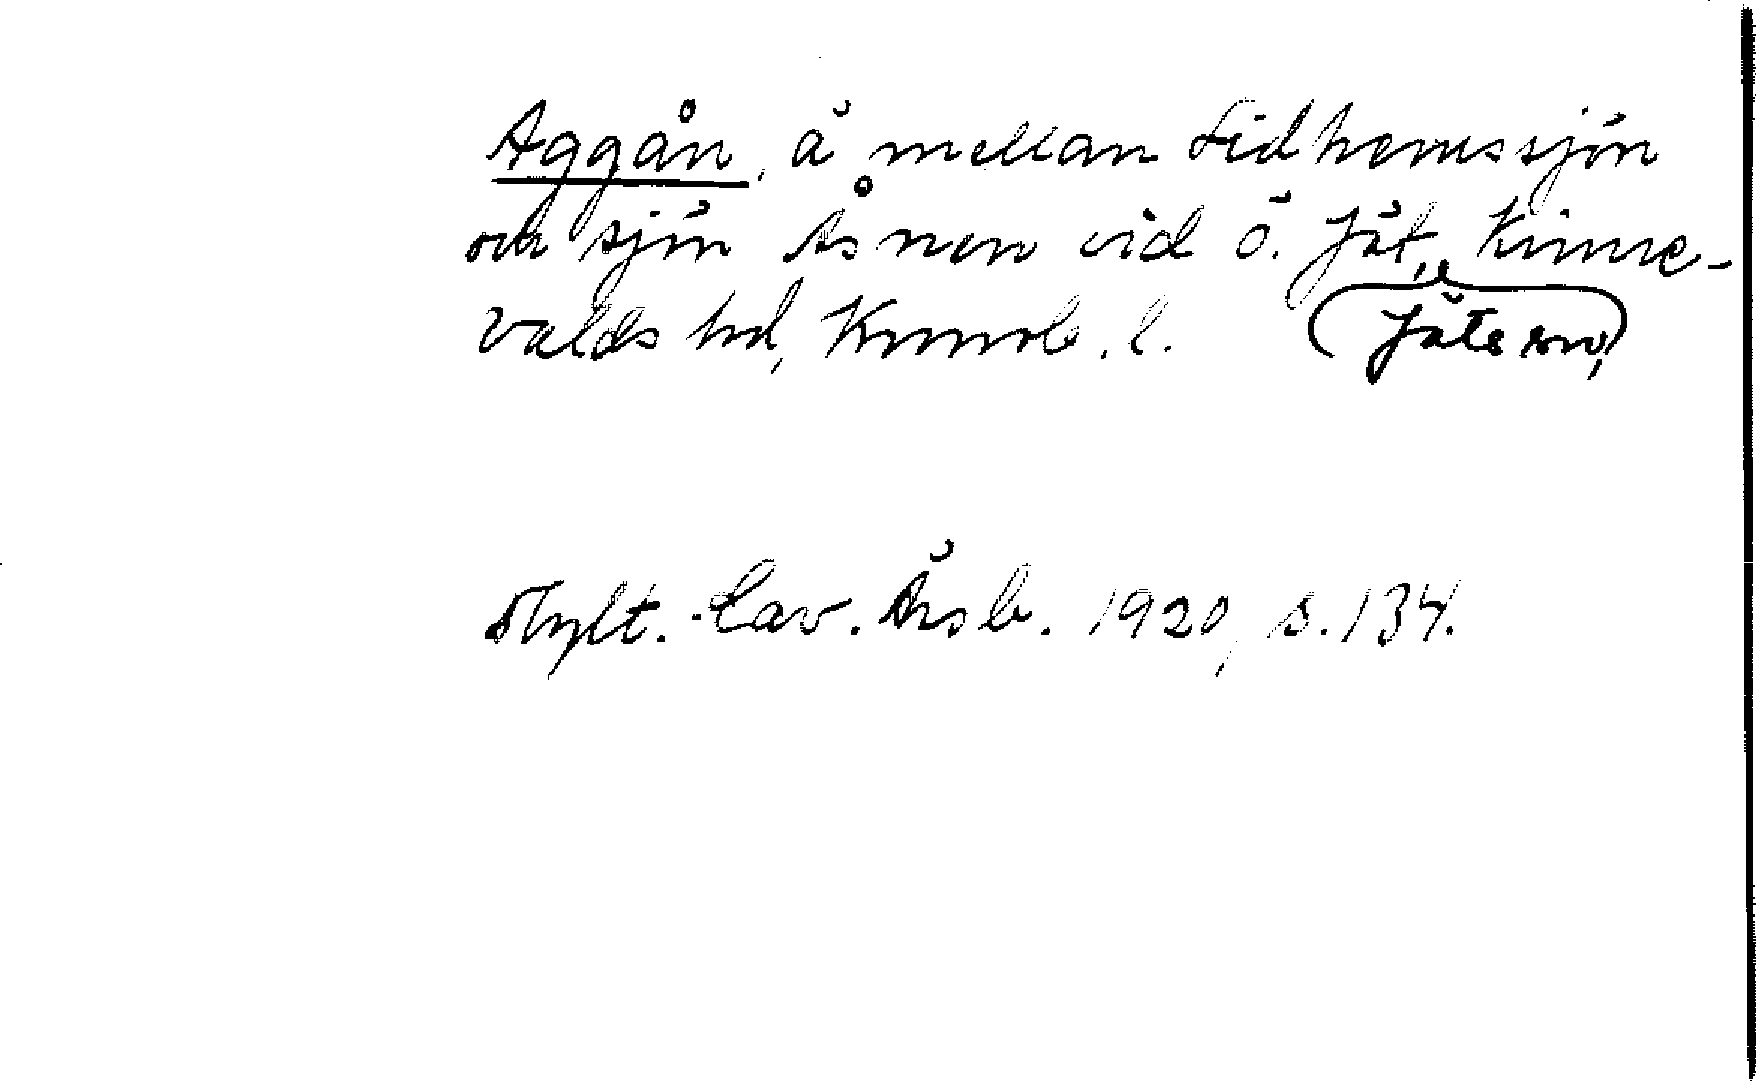 Aggån, å mellan Lidhemssjön
och sjön Åsnen vid Ö. Jät, Kinne-
valds hd, Kronob. l. (Jäts sn,)
Hylt.-Cav. Årsb. 1920, s. 134.